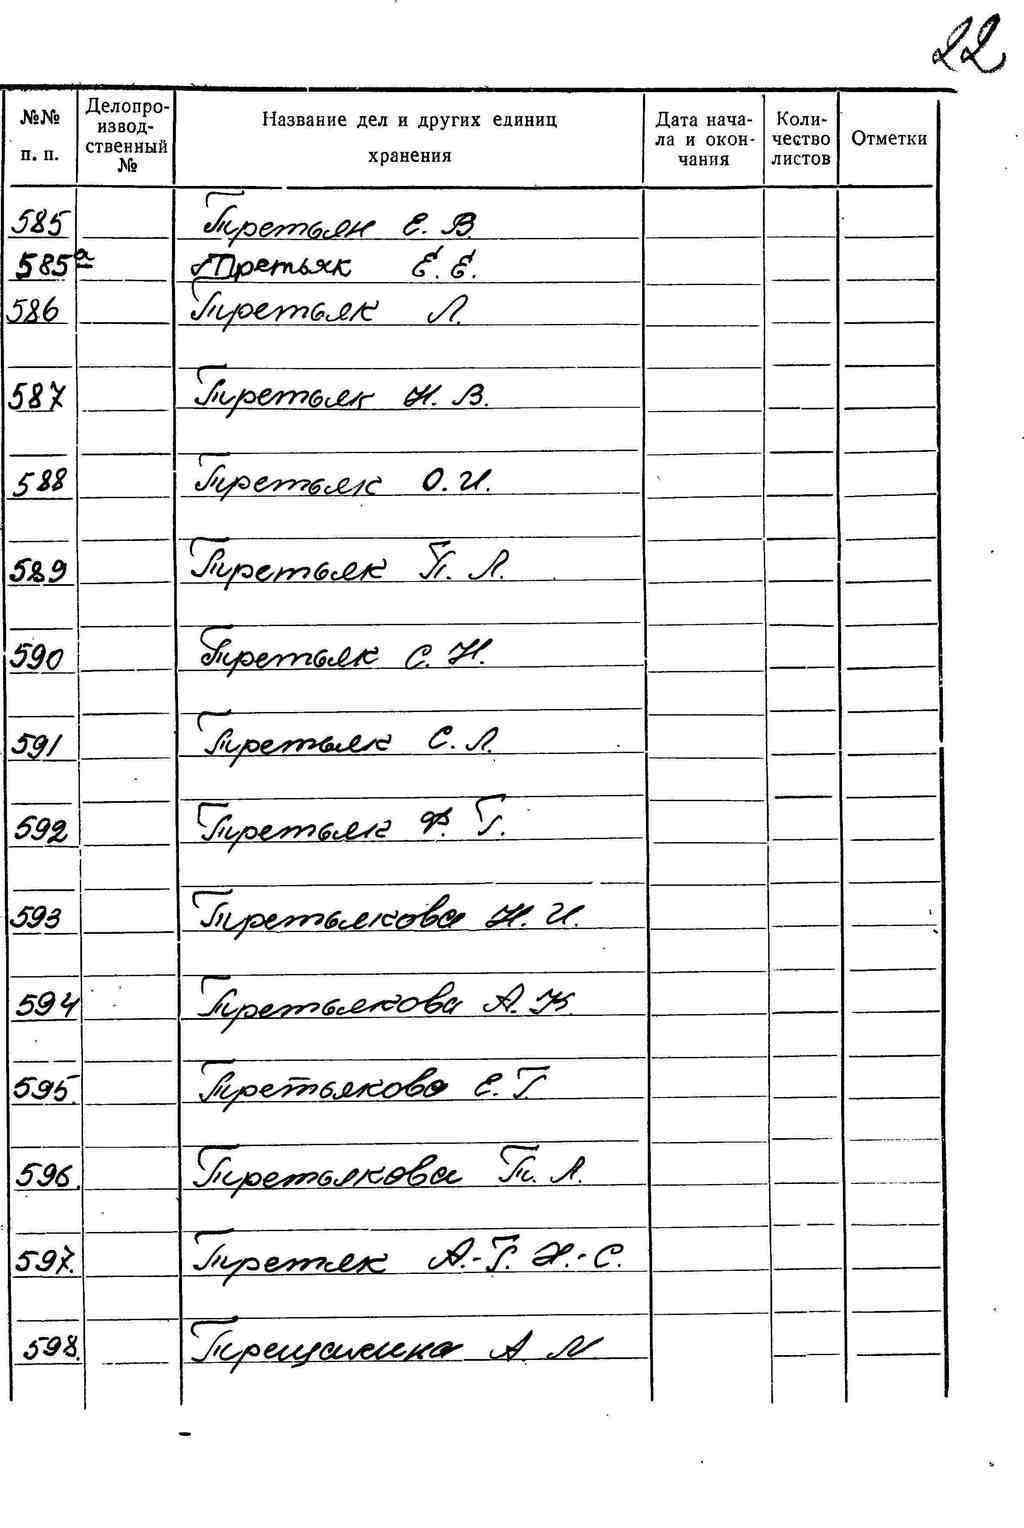 22
№№ п. п. Делопроизводственный № Название дел и других единиц хранения Дата начала и окончания Количество листов Отметки
585 Третьяк Е. В.
585а Третьяк Е. Е.
586 Третьяк Л.
587 Третьяк Н. В.
588 Третьяк О. И.
589 Третьяк Т. Л.
590 Третьяк С. Н.
591 Третьяк С. Л.
592 Третьяк Ф. Г.
593 Третьякова Н. И.
594 Третьякова А. К.
595. Третьякова Е. Г.
596. Третьякова Т. А.
597. Третяк А.-Г. Н.-С.
598. А М